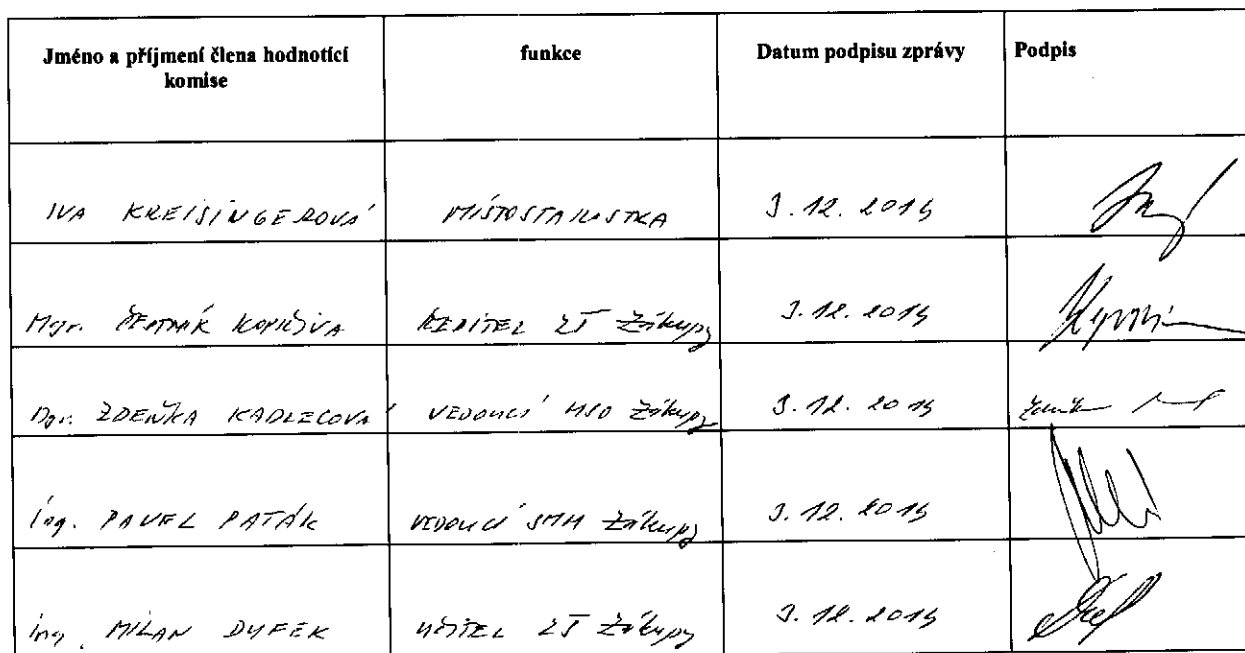 Jméno a příjmení člena hodnotící komise funkce Datum podpisu zprávy Podpis
IVA KREISINGEROVÁ MÍSTOSTAROSTKA 3.12.2014
Mgr. KOPŘIVA ŘEDITEL ZŠ Zákupy 3.12.2014
Mgr. ZDEŇKA KADLECOVÁ VEDOUCÍ Zákupy 3.12.2014
Ing. PAVEL PATÁK VEDOUCÍ SMM Zákupy 3.12.2014
Ing. MILAN DUFEK UČITEL ZŠ Zákupy 3.12.2014